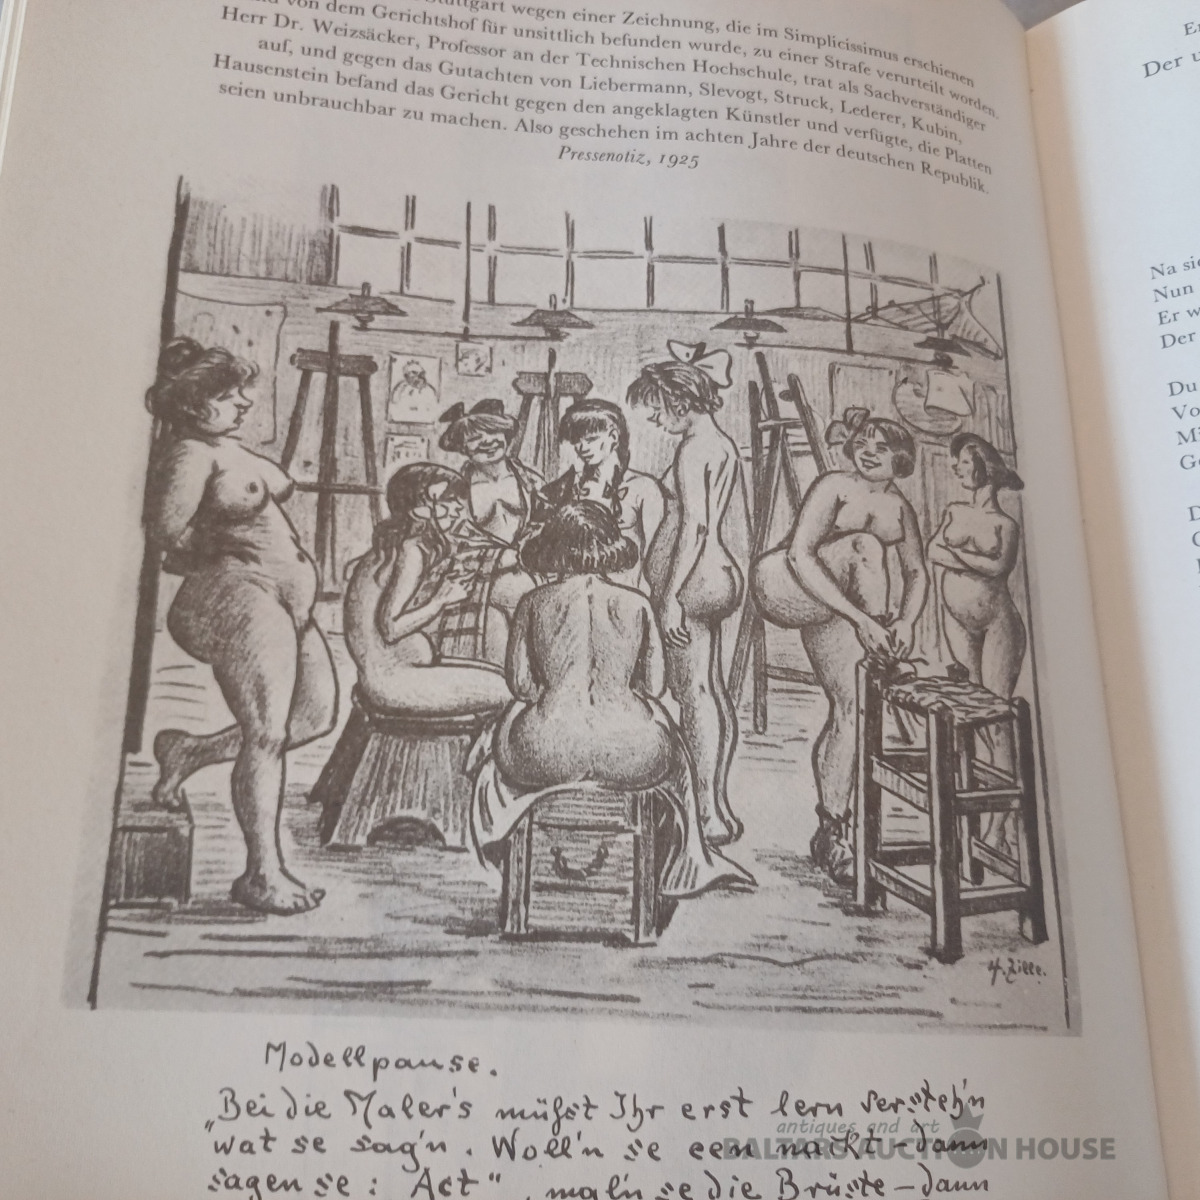 Stuttgart wegen einer Zeichnung, die im Simplicissimus erschienen
und von dem Gerichtshof für unsittlich befunden wurde, zu einer Strafe verurteilt worden.
Herr Dr. Weizsäcker, Professor an der Technischen Hochschule, trat als Sachverständiger
auf, und gegen das Gutachten von Liebermann, Slevogt, Struck, Lederer, Kubin,
Hausenstein befand das Gericht gegen den angeklagten Künstler und verfügte, die Platten
seien unbrauchbar zu machen. Also geschehen im achten Jahre der deutschen Republik.
Pressenotiz, 1925
H. Zille.
Modellpause.
"Bei die Maler's müßt Ihr erst lern versteh'n
wat se sag'n. Woll'n se een nackt – dann
sagen se: Act", mal'n se die Brüste – dann
Der
Na
Nun
Er
Der
Du
antiques and art
BALTARS AUCTION HOUSE